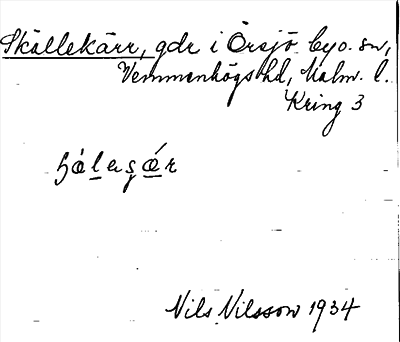 Skällekärr, gdr i Örsjö by o. sn,
Vemmenhögs hd, Malm. l.
Kring 3
Nils Nilsson 1934